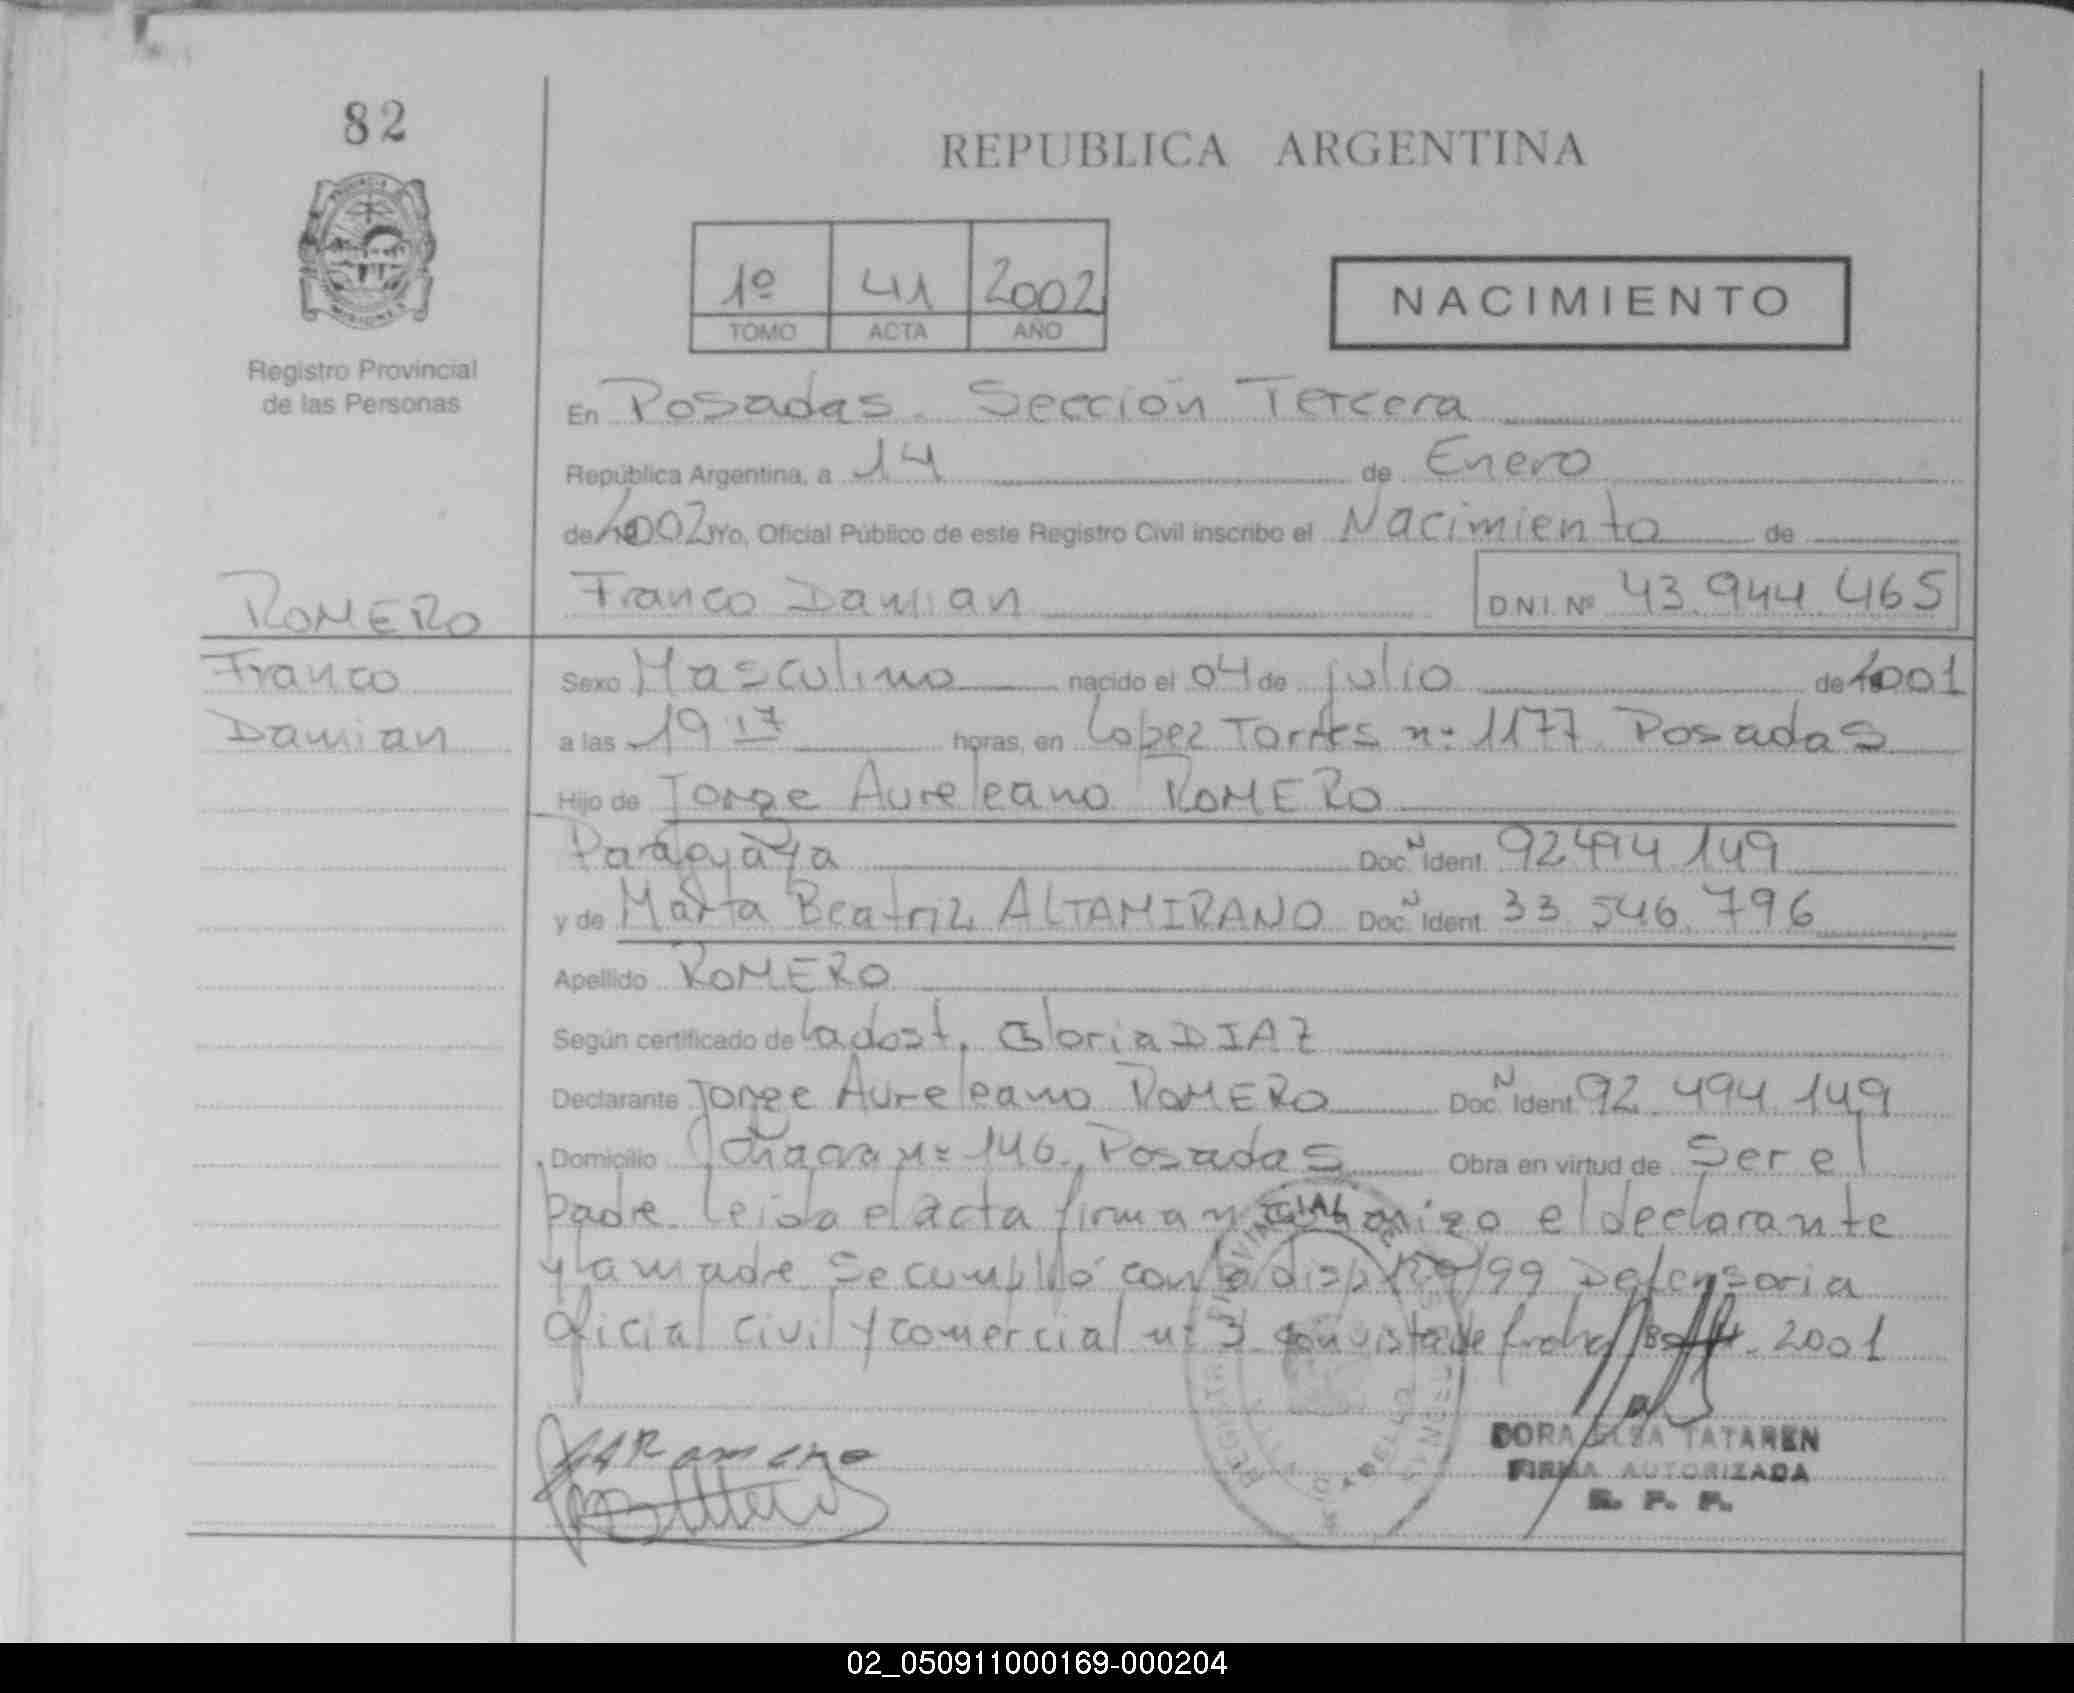 82
REPUBLICA ARGENTINA
1º 41 2002
TOMO ACTA AÑO
NACIMIENTO
Registro Provincial
de las Personas
En Posadas. Sección Tercera
República Argentina, a 14 de Enero
de 2002 Yo, Oficial Público de este Registro Civil inscribo el Nacimiento de
ROMERO
Franco Damian DNI. Nº 43.944.465
Franco
Damian
Sexo Masculino nacido el 04 de julio de 2001
a las 19 17 horas, en Lopez Torres nº 1177 Posadas
Hijo de Jorge Aureleano ROMERO
Paraguaya Doc. N Ident. 92494149
y de Marta Beatriz ALTAMIRANO Doc. N Ident. 33.546.796
Apellido ROMERO
Según certificado de Gloria DIAZ
Declarante Jorge Aureleano ROMERO Doc. N Ident. 92.494.149
Domicilio Chacra nº 146. Posadas Obra en virtud de Ser el
padre. Leida el acta firman conmigo el declarante
y la madre Se cumplió con la disp /99 Defensoria
Oficial civil y comercial nº 3 con vista de 2001
DORA ELSA TATAREN
FIRMA AUTORIZADA
R. P. P.
02_050911000169-000204